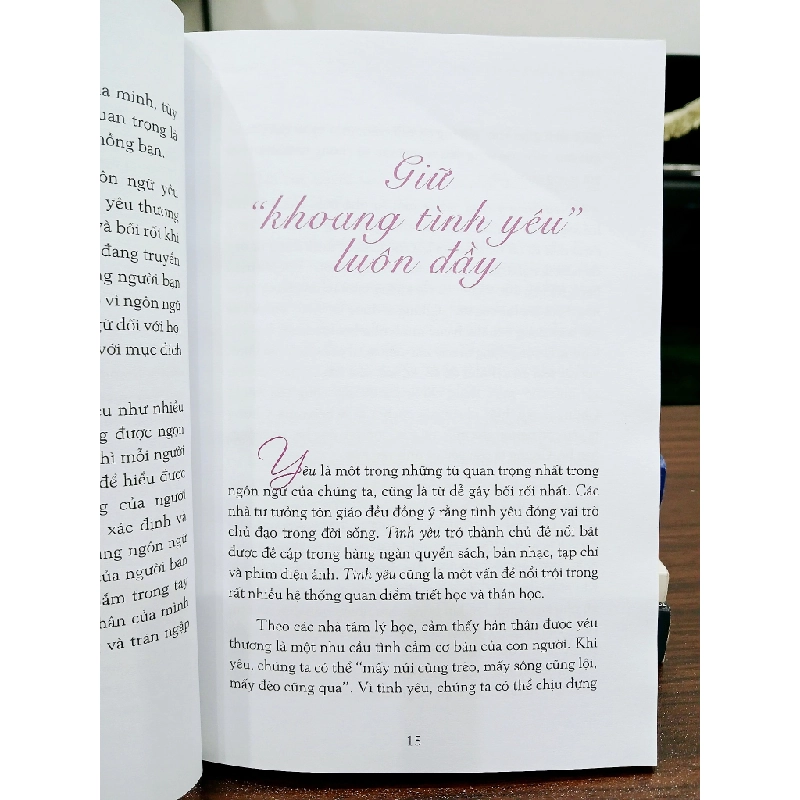 a mình, tùy
uan trọng là
hông bạn.
ôn ngữ yêu
yêu thương
và bối rối khi
đang truyền
ng người bạn
vì ngôn ngũ
ữ đối với họ
với mục đích
êu như nhiều
g được ngọn
hì mỗi người
để hiểu được
g của người
xác định và
ang ngôn ngữ
của người bạn
ắm trong tay
hân của mình
và tràn ngập
Giữ
“khoang tình yêu”
luôn đầy
Yêu là một trong những từ quan trọng nhất trong
ngôn ngữ của chúng ta, cũng là từ dễ gây bối rối nhất. Các
nhà tư tưởng tôn giáo đều đồng ý rằng tình yêu đóng vai trò
chủ đạo trong đời sống. Tình yêu trở thành chủ đề nổi bật
được đề cập trong hàng ngàn quyển sách, bản nhạc, tạp chí
và phim điện ảnh. Tình yêu cũng là một vấn đề nổi trội trong
rất nhiều hệ thống quan điểm triết học và thần học.
Theo các nhà tâm lý học, cảm thấy bản thân được yêu
thương là một nhu cầu tình cảm cơ bản của con người. Khi
yêu, chúng ta có thể “mấy núi cũng trèo, mấy sông cũng lội,
mấy đèo cũng qua”. Vì tình yêu, chúng ta có thể chịu đựng